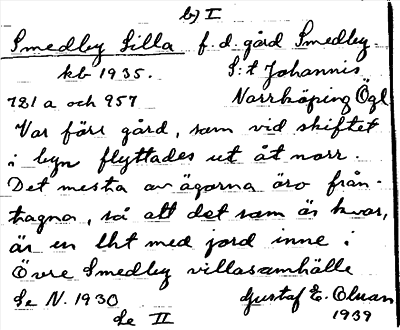 b) I
Smedby Lilla f. d. gård Smedby.
kb 1935. S:t Johannis
781 a och 957 Norrköping Ögl
Var förr gård, som vid skiftet
i byn flyttades ut åt norr.
Det mesta av ägorna äro från-
tragna, så att det som är kvar,
är en lht med jord inne i
Övre Smedby villasamhälle
Se N. 1930 Gustaf E. Olsson
Se II 1939